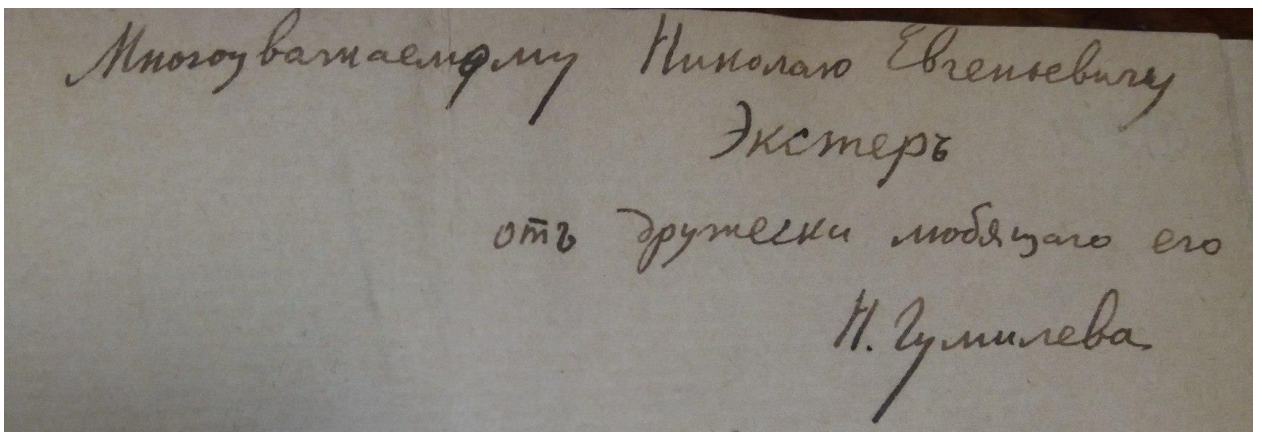 Многоуважаемому Николаю Евгеньевичу
Экстеръ
отъ дружески любящаго его
Н. Гумилева